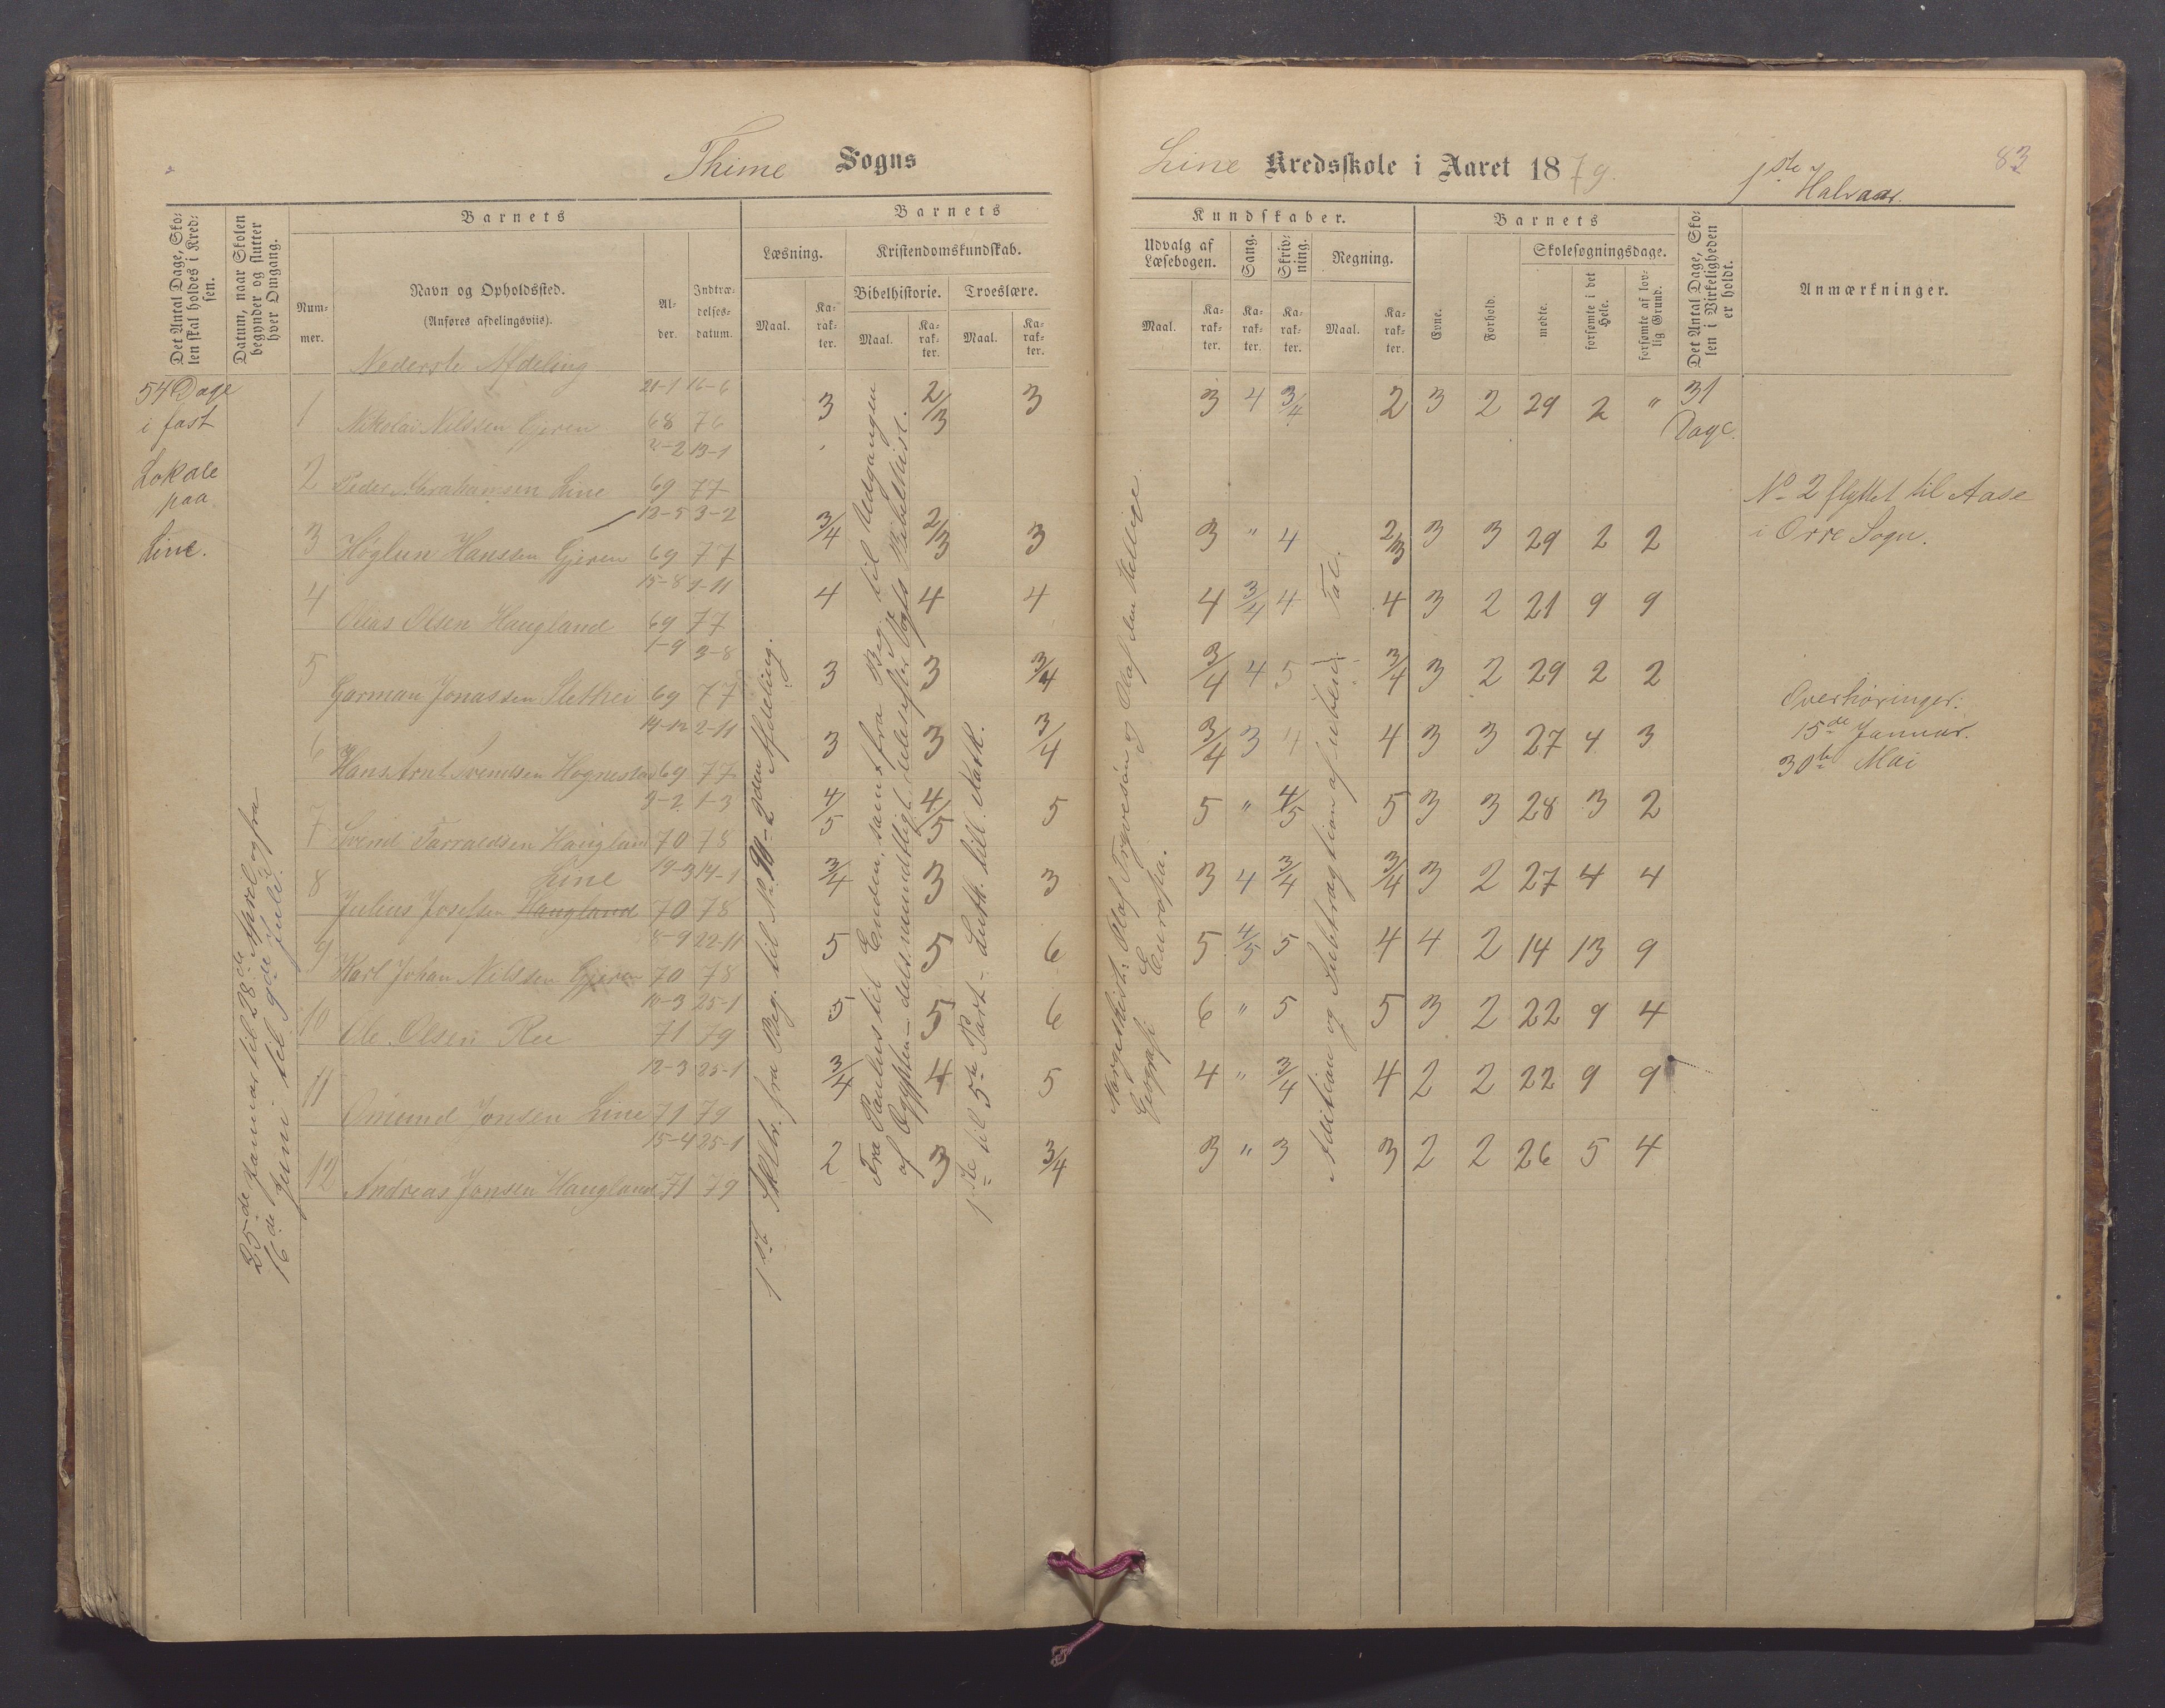 Thime Sogns
Line Kredsskole i Aaret 1879.
1ste Halvaar.
83
Det Antal Dage, Skolen skal holdes i Kredsen.
Datum, naar Skolen begynder og slutter hver Omgang.
Barnets
Nummer.
Navn og Opholdssted.
(Anføres afdelingsviis).
Nederste Afdeling
Alder.
Indtrædelsesdatum.
Barnets
Læsning.
Maal.
Karakter.
Kristendomskundskab.
Bibelhistorie.
Maal.
Karakter.
Troeslære.
Maal.
Karakter.
Kundskaber.
Udvalg af Læsebogen.
Maal.
Karakter.
Sang.
Karakter.
Skrivning.
Karakter.
Regning.
Maal.
Karakter.
Barnets
Evne.
Forhold.
Skolesøgningsdage.
mødte.
forsømte i det Hele.
forsømte af lovlig Grund.
Det Antal Dage, Skolen i Virkeligheden er holdt.
Anmærkninger.
54 Dage
i fast
Lokale
paa
Line.
25de Januar til 28de April og fra
16de Juni til 9de Juli.
1 Nikolai Nilssen Gjeren 21-1 68 16-6 76 3 2/3 3 3 4 3/4 2 3 2 29 2 " 31 Dage.
2 Peder Abrahamsen Line 69 13-1 77
3 Høglun Hanssen Gjeren 13-5 69 3-2 77 3/4 2/3 3 3 " 4 2/3 3 3 29 2 2
4 Olsen Haugland 15-8 69 1-11 77 4 4 4 4 3/4 4 4 3 2 21 9 9
5 Garman Jonassen Slethei 1-9 69 3-8 77 3 3 3/4 3/4 4 5 3/4 3 2 29 2 2
6 Hans Arnt Svendsen Hognestad 14-12 69 2-11 77 3 3 3/4 3/4 3 4 4 3 3 27 4 3
7 Svend Tarraldsen Haugland 9-2 70 1-3 78 4/5 4/5 5 5 " 4/5 5 3 3 28 3 2
8 Julius Josefsen Haugland Line 19-3 70 14-1 78 3/4 3 3 3 4 3/4 3/4 3 2 27 4 4
9 Karl Johan Nilssen Gjeren 8-9 70 22-11 78 5 5 6 5 4/5 5 4 4 2 14 13 9
10 Ole Olsen Ree 10-3 71 25-1 79 5 5 6 6 " 5 5 3 2 22 9 4
11 Omund Jonsen Line 12-3 71 25-1 79 3/4 4 5 4 " 3/4 4 2 2 22 9 9
12 Andreas Jonsen Haugland 15-4 71 25-1 79 2 3 3/4 3 " 3 3 2 2 26 5 4
fra Beg. til
2den Afdeling.
Fra Paulus til Enden, samt fra Beg. til Udgangen
af Ægypten dels mundtligt, dels efter Vogts Bibelhist.
1ste til 5te Part Luth. lill. Katk.
Norgeshist: Olaf Trygvesøn og Olaf den Hellige.
Geografi Europa.
Addition og Subtragtion af ubenævnte Tal.
No 2 flyttet til Aase
i Orre Sogn.
Overhøringer:
15de Januar.
30te Mai